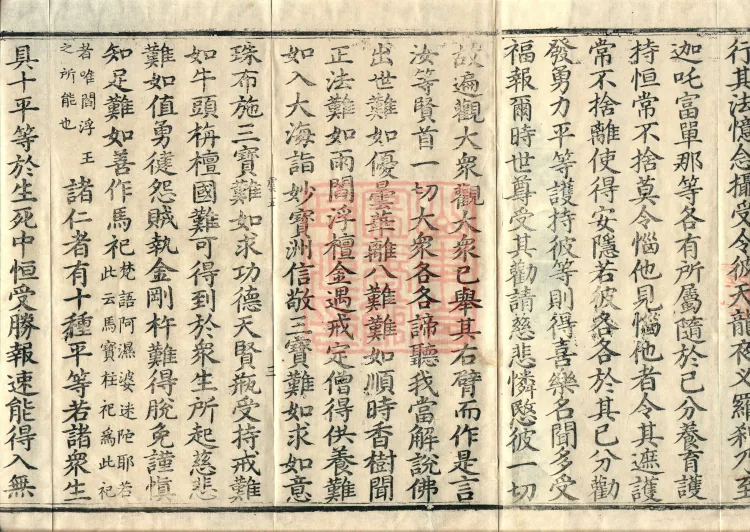 行其法憶念攝受令彼天龍夜叉羅刹乃至
迦吒富單那等各有所屬隨於己分養育護
持恒常不捨莫令惱他見惱他者令其遮護
常不捨離使得安隱若彼各各於其己分勸
發勇力平等護持彼等則得喜樂名聞多受
福報爾時世尊受其勸請慈悲憐愍彼一切
故遍觀大衆觀大衆已舉其右臂而作是言
汝等賢首一切大衆各各諦聽我當解說佛
出世難如優曇華離八難難如順時香樹聞
正法難如雨閻浮檀金遇戒定僧得供養難
如入大海詣妙寶洲信敬三寶難如求如意
三
珠布施三寶難如求功德天賢瓶受持戒難
如牛頭栴檀國難可得到於衆生所起慈悲
難如值勇健怨賊執金剛杵難得脫免謹慎
知足難如善作馬祀梵語阿濕婆迷陁耶若此云馬寶柱祀爲此祀
者唯閻浮王之所能也諸仁者有十種平等若諸衆生
具十平等於生死中恒受勝報速能得入無